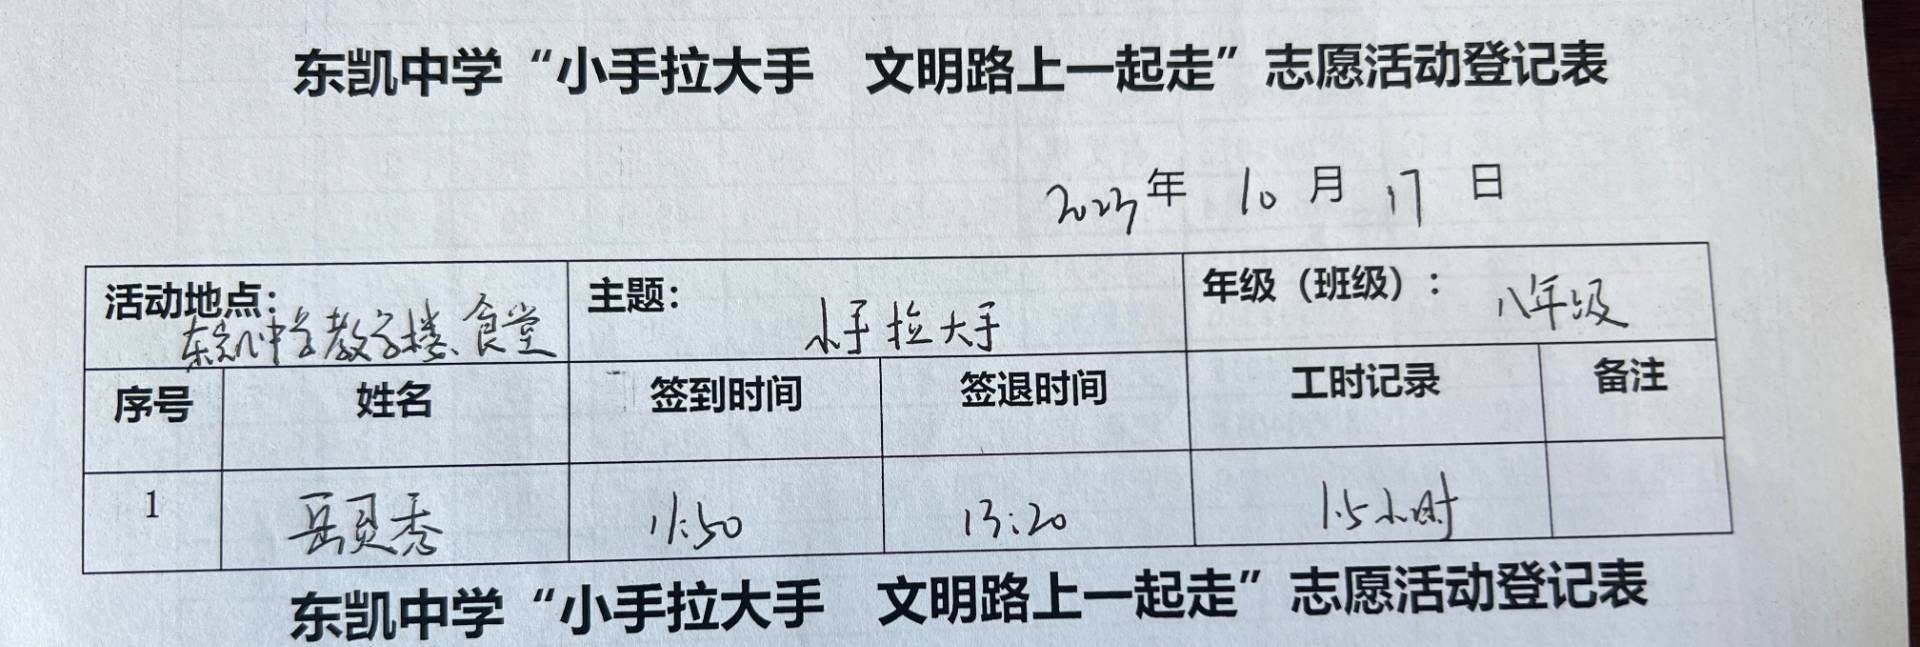 东凯中学“小手拉大手 文明路上一起走”志愿活动登记表
2023年 10月 17日
活动地点：东凯中学教学楼、食堂 主题：小手拉大手 年级（班级）：八年级
序号 姓名 签到时间 签退时间 工时记录 备注
1 岳贝秀 11:50 13:20 1.5小时
东凯中学“小手拉大手 文明路上一起走”志愿活动登记表